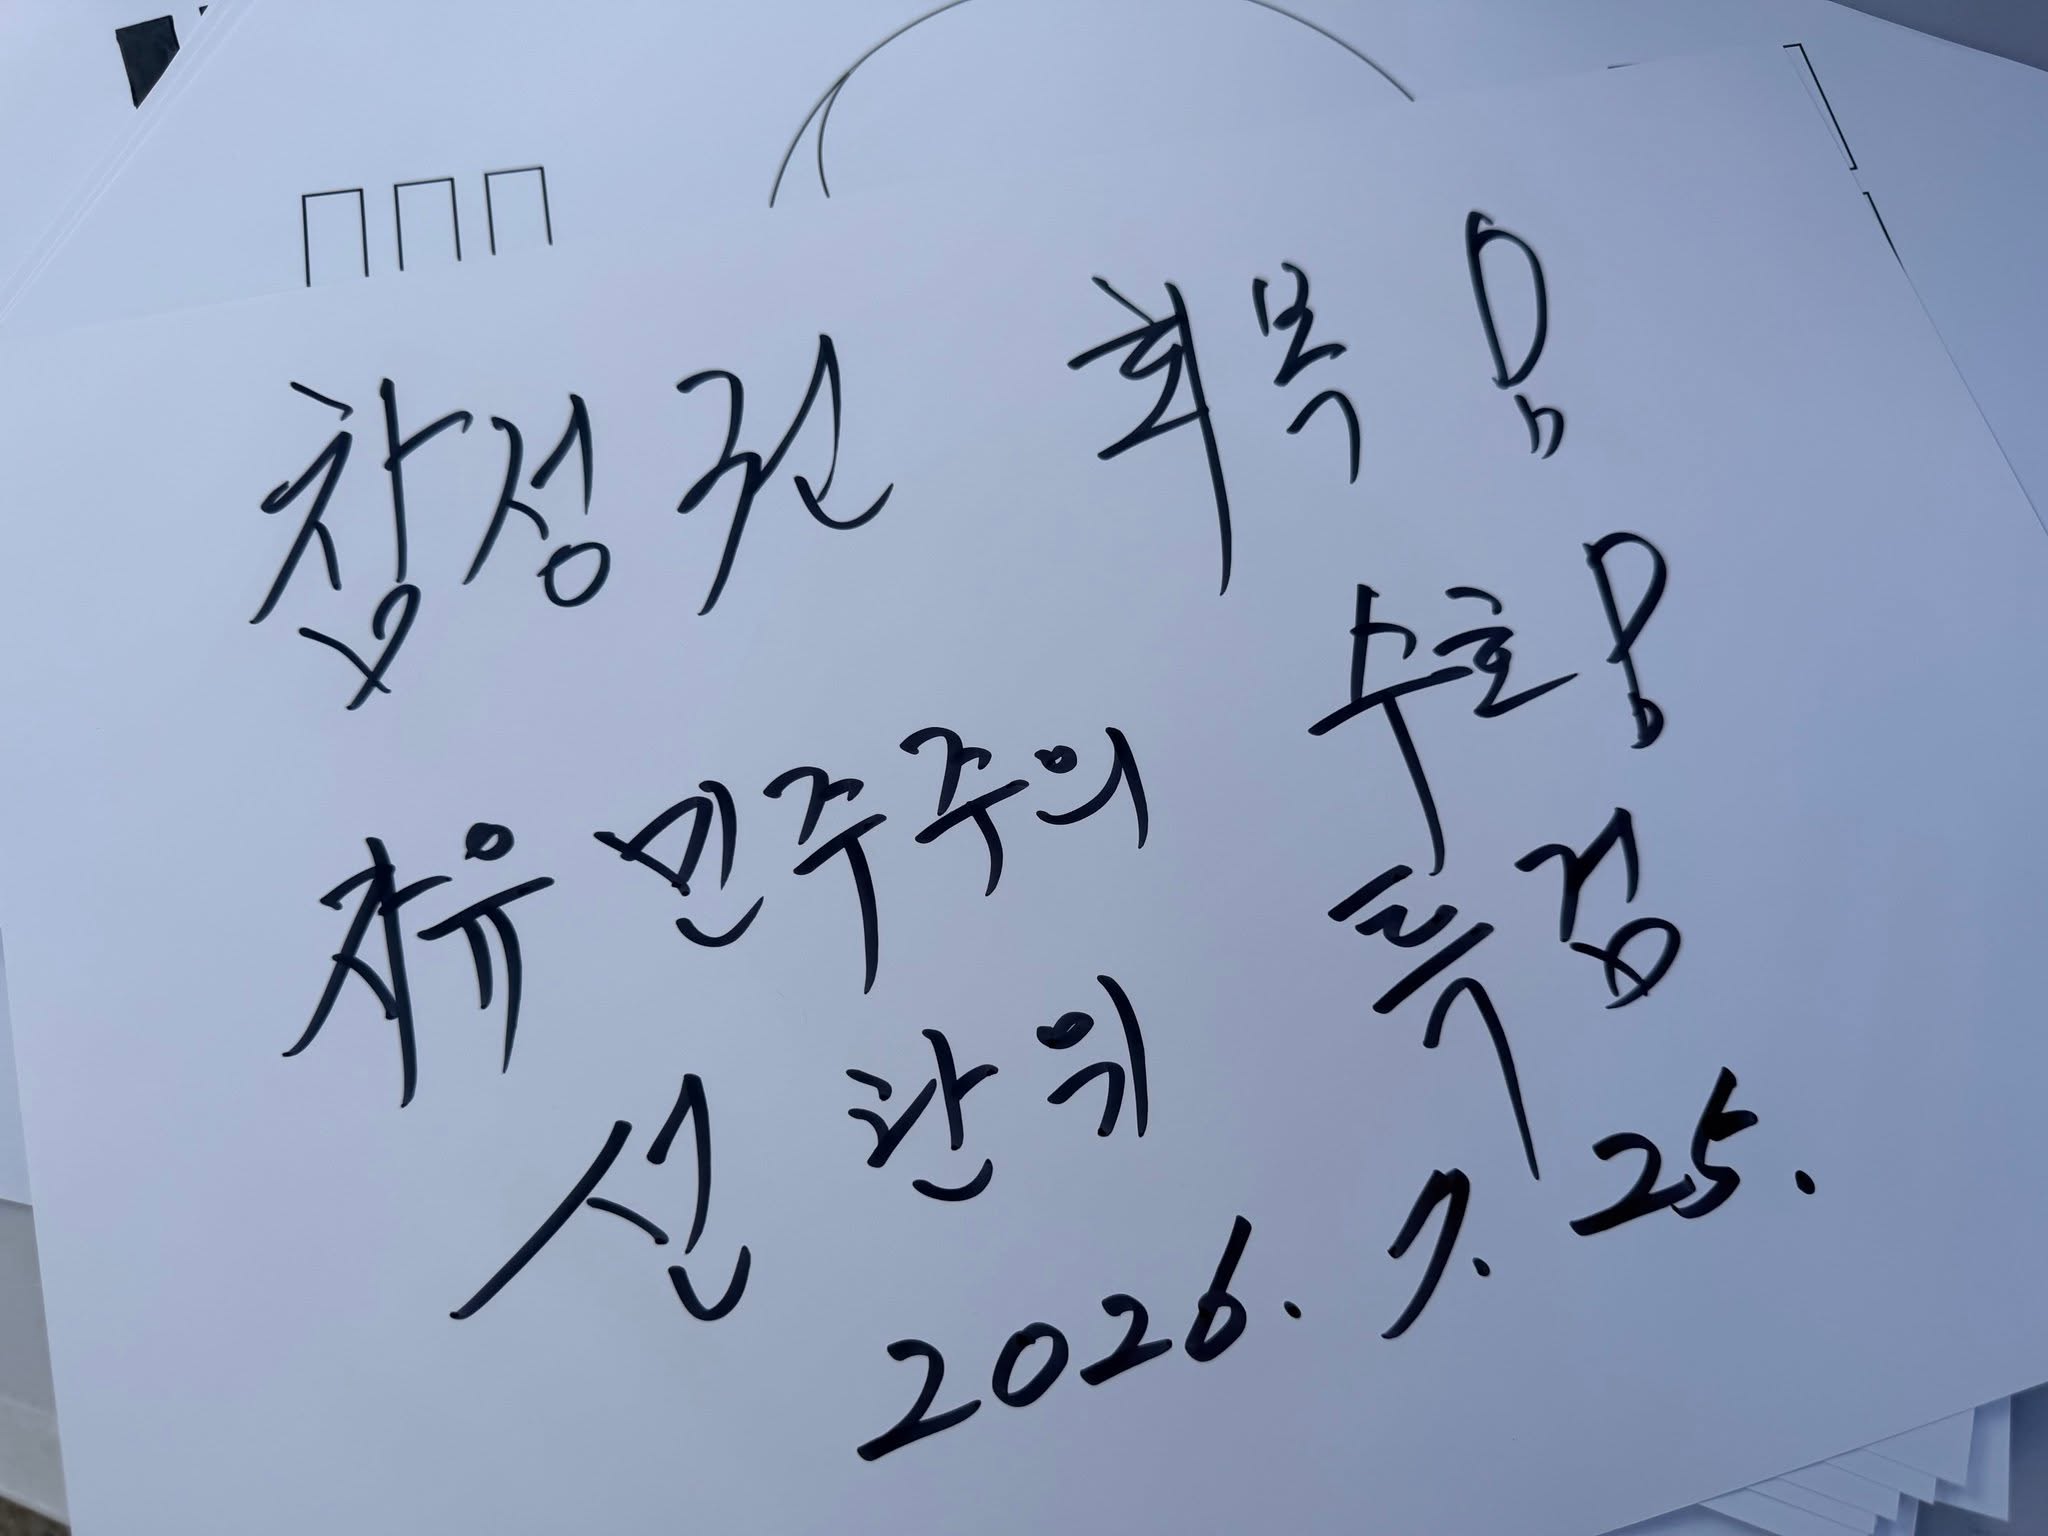 참정권 회복!
자유민주주의 수호!
선관위 특검
2026. 7. 25.